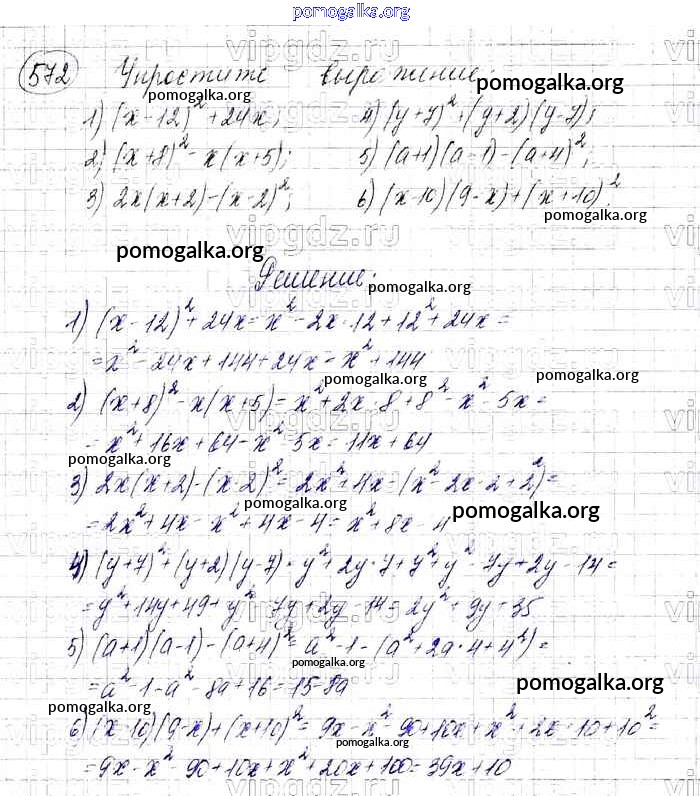 pomogalka.org
572 Упростите выражение.
pomogalka.org
pomogalka.org
1) (x-12)² + 24x; 4) (y+7)² + (y+2)(y-7);
2) (x+8)² - x(x+5); 5) (a+1)(a-1) - (a+4)²;
3) 2x(x+2) - (x-2)²; 6) (x-10)(9-x) + (x+10)².
pomogalka.org
vipgdz.ru
pomogalka.org
Решение.
pomogalka.org
1) (x-12)² + 24x = x² - 2x·12 + 12² + 24x =
= x² - 24x + 144 + 24x = x² + 144
pomogalka.org
pomogalka.org
2) (x+8)² - x(x+5) = x² + 2x·8 + 8² - x² - 5x =
= x² + 16x + 64 - x² - 5x = 11x + 64
pomogalka.org
3) 2x(x+2) - (x-2)² = 2x² + 4x - (x² - 2x·2 + 2²) =
pomogalka.org
= 2x² + 4x - x² + 4x - 4 = x² + 8x - 4
pomogalka.org
4) (y+7)² + (y+2)(y-7) = y² + 2y·7 + 7² + y² - 7y + 2y - 14 =
= y² + 14y + 49 + y² - 7y + 2y - 14 = 2y² + 9y + 35
5) (a+1)(a-1) - (a+4)² = a² - 1 - (a² + 2a·4 + 4²) =
pomogalka.org
= a² - 1 - a² - 8a + 16 = 15 - 8a
pomogalka.org
pomogalka.org
6) (x-10)(9-x) + (x+10)² = 9x - x² - 90 + 10x + x² + 2x·10 + 10² =
pomogalka.org
= 9x - x² - 90 + 10x + x² + 20x + 100 = 39x + 10